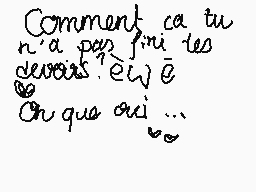 Comment ca tu
n'a pas fini tes
devoirs? èwé
Oh que oui ...